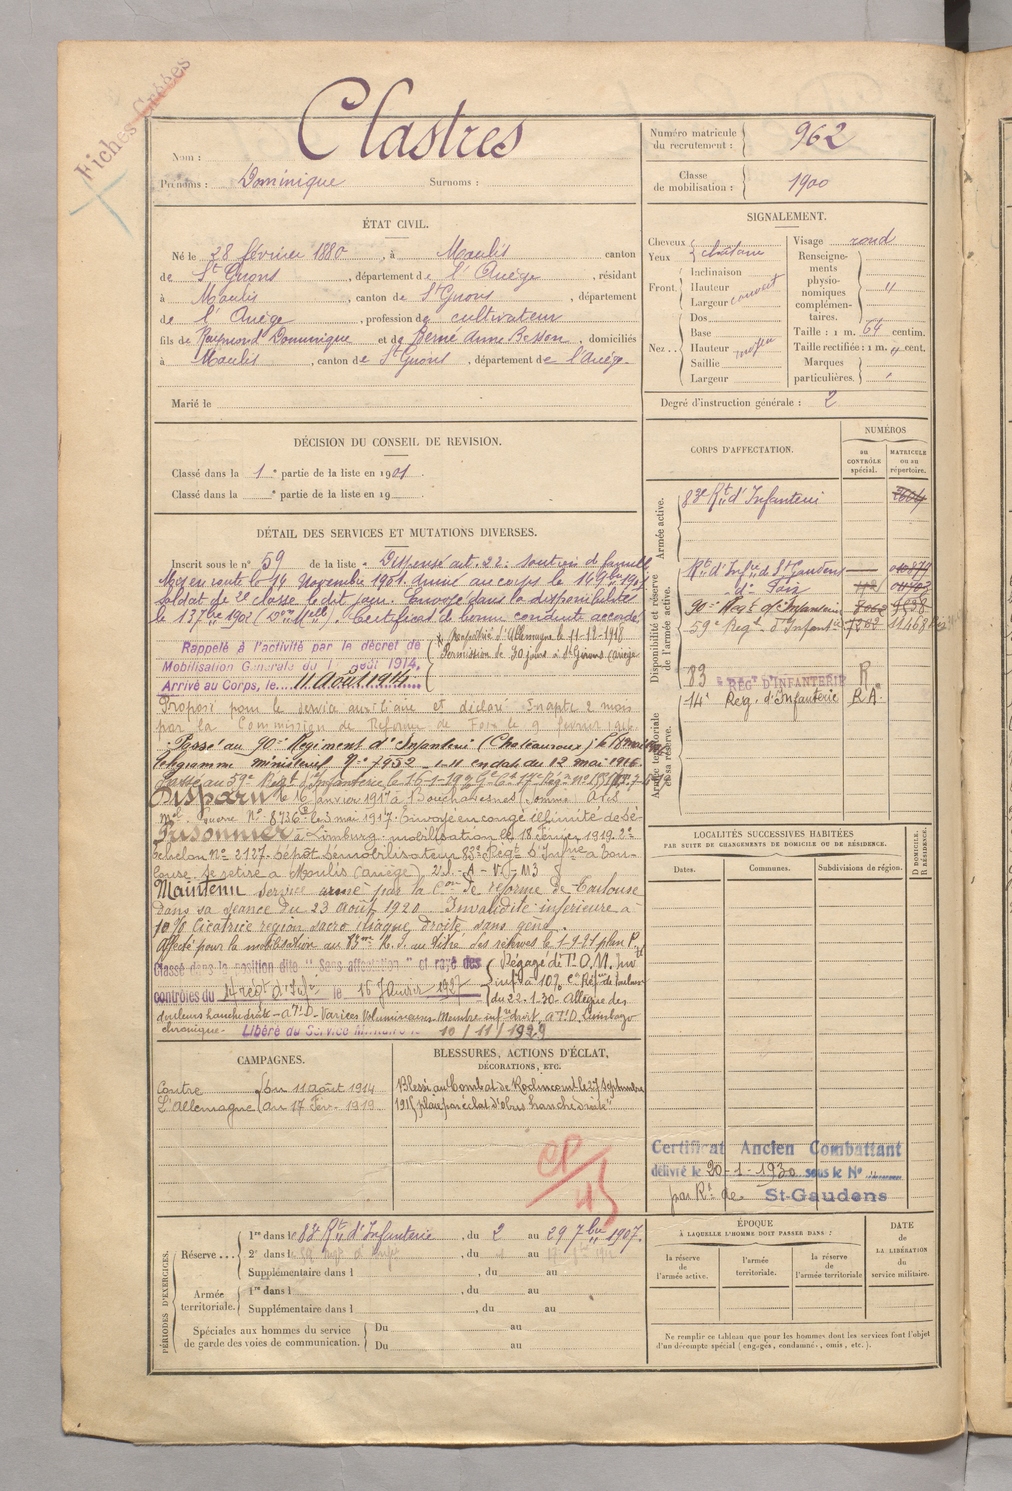 Fiches Créées
Clastres
Nom :
Prénoms : Dominique Surnoms :
Numéro matricule du recrutement : 962
Classe de mobilisation : 1900
ÉTAT CIVIL.
Né le 28 février 1880, à Moulis canton
de St Girons, département de l'Ariège, résidant
à Moulis, canton de St Girons, département
de l'Ariège, profession de cultivateur
fils de Raymond Dominique et de Berné Anne Besson, domiciliés
à Moulis, canton de St Girons, département de l'Ariège.
Marié le
SIGNALEMENT.
Cheveux
Yeux châtain
Front. Inclinaison
Hauteur
Largeur couvert
Nez.. Dos
Base
Hauteur moyen
Saillie
Largeur
Visage rond
Renseignements physionomiques complémentaires. "
Taille : 1 m. 64 centim.
Taille rectifiée : 1 m. " cent.
Marques particulières. "
Degré d'instruction générale : 2
DÉCISION DU CONSEIL DE REVISION.
Classé dans la 1e partie de la liste en 1901.
Classé dans la e partie de la liste en 19
DÉTAIL DES SERVICES ET MUTATIONS DIVERSES.
Inscrit sous le n° 59 de la liste. Dispensé art. 22. soutien de famille
Mis en route le 14 Novembre 1901. Arrivé au corps le 14 9bre 1901
soldat de 2e classe le dit jour. Envoyé dans la disponibilité
le 13 7bre 1902 Certificat de bonne conduite accordé
Rappelé à l'activité par le décret de
Mobilisation Générale du 1 août 1914.
Arrivé au Corps, le 11 Août 1914
Rapatrié d'Allemagne le 11-12-1918
Permission de 30 jours à St Girons (Ariège
Proposé pour le service auxiliaire et déclaré Inapte 2 mois
par la Commission de Réforme de Foix le 9 février 1916.
Passé au 90e Régiment d'Infanterie (Chateauroux) le 18 mai 1916
telegramme ministeriel N° 7952 1-11 en date du 12 mai 1916.
Passé au 59e Regt d'Infanterie le 16-1-19
Disparu le 16 janvier 1917 à Bouchavesnes (Somme) Avis
mel Guerre N° 8736 le 3 mai 1917. Envoyé en congé illimité de dé-
Prisonnier à Limburg. mobilisation le 18 Février 1919. 2e
échelon N° 2127. Dépôt démobilisateur 83e Régt d'Infrie à Tou-
louse. Se retire à Moulis (Ariège)
Maintenu service armé par la Con de réforme de Toulouse
dans sa séance du 23 août 1920 Invalidité inférieure à
10% Cicatrice région sacro iliaque droite sans gêne.
Affecté pour la mobilisation au 83me R.I. au titre des réserves le 1-9-21 plan P.
Classé dans la position dite "Sans affectation" et rayé des
contrôles du 14 régt d'Infie le 15 Janvier 1927
Dégagé de T. O. M. Inv té
inf. à 10% Con Réfme de Toulouse
du 22-1-30. Allègue des
douleurs hanche droite - Varices volumineuses Membre infre droit, Lumbago
chronique. Libéré du Service Militaire le 10/11/1929
CORPS D'AFFECTATION.
NUMÉROS
au CONTRÔLE spécial.
MATRICULE ou au répertoire.
Armée active.
83e Rt d'Infanterie
Disponibilité et réserve de l'armée active.
Rt d'Infie de St Gaudens
d° Foix
90e Regt d'Infanterie
59e Regt d'Infanterie 11468
83 REGt D'INFANTERIE R
14e Reg. d'Infanterie R.A.
Armée territoriale et sa réserve.
LOCALITÉS SUCCESSIVES HABITÉES
PAR SUITE DE CHANGEMENTS DE DOMICILE OU DE RÉSIDENCE.
Dates.
Communes.
Subdivisions de région.
D DOMICILE.
R RÉSIDENCE.
CAMPAGNES.
Contre l'Allemagne du 11 août 1914
au 17 Fév. 1919
BLESSURES, ACTIONS D'ÉCLAT,
DÉCORATIONS, ETC.
Blessé au Combat de Roclincourt le 27 septembre
1915 plaie par éclat d'obus hanche droite"
CP/45
Certificat Ancien Combattant
délivré le 20-1-1930 sous le N° "
par Rt de St-Gaudens
PÉRIODES D'EXERCICES.
Réserve...
1re dans le 83e Rt d'Infanterie, du 2 au 29 7bre 1907.
2e dans le 59 regt d'infie, du au
Supplémentaire dans l , du au
Armée territoriale.
1re dans l , du au
Supplémentaire dans l , du au
Spéciales aux hommes du service de garde des voies de communication.
Du au
Du au
ÉPOQUE
À LAQUELLE L'HOMME DOIT PASSER DANS :
la réserve de l'armée active.
l'armée territoriale.
la réserve de l'armée territoriale
DATE de LA LIBÉRATION du service militaire.
Ne remplir ce tableau que pour les hommes dont les services font l'objet
d'un décompte spécial (engagés, condamnés, omis, etc.).